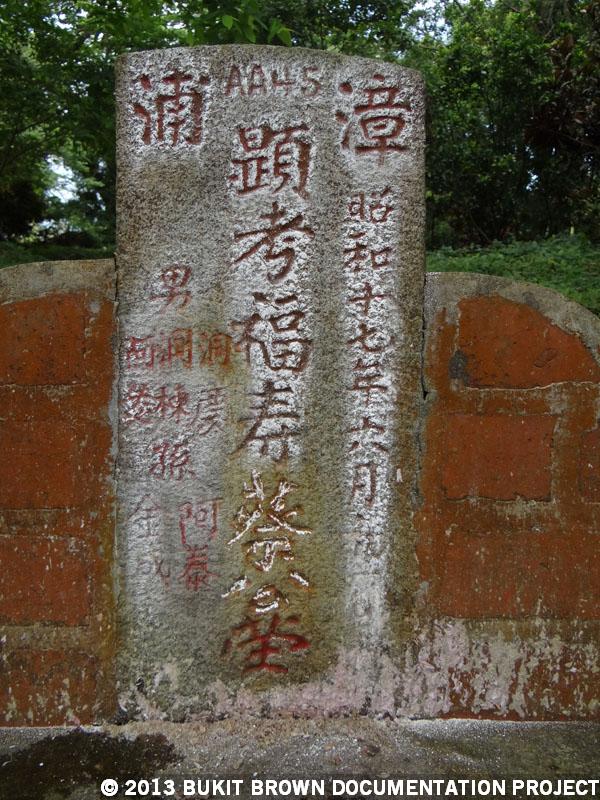 AA45
漳
浦
昭和十七年六月
顕考福寿蔡公莹
男
洞 洞 西
慶 棟
孫
阿泰
金成
© 2013 BUKIT BROWN DOCUMENTATION PROJECT